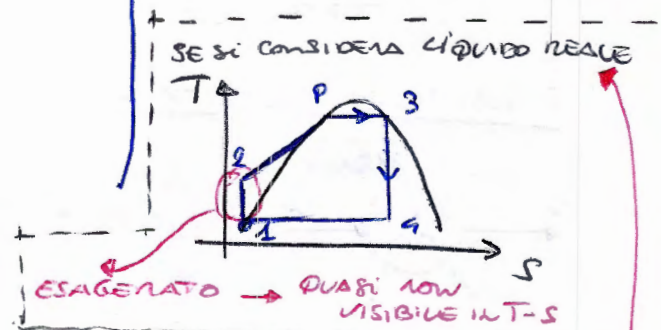 SE SI CONSIDERA LIQUIDO REALE
T
P
3
2
1
4
S
ESAGERATO → QUASI NON
VISIBILE IN T-S